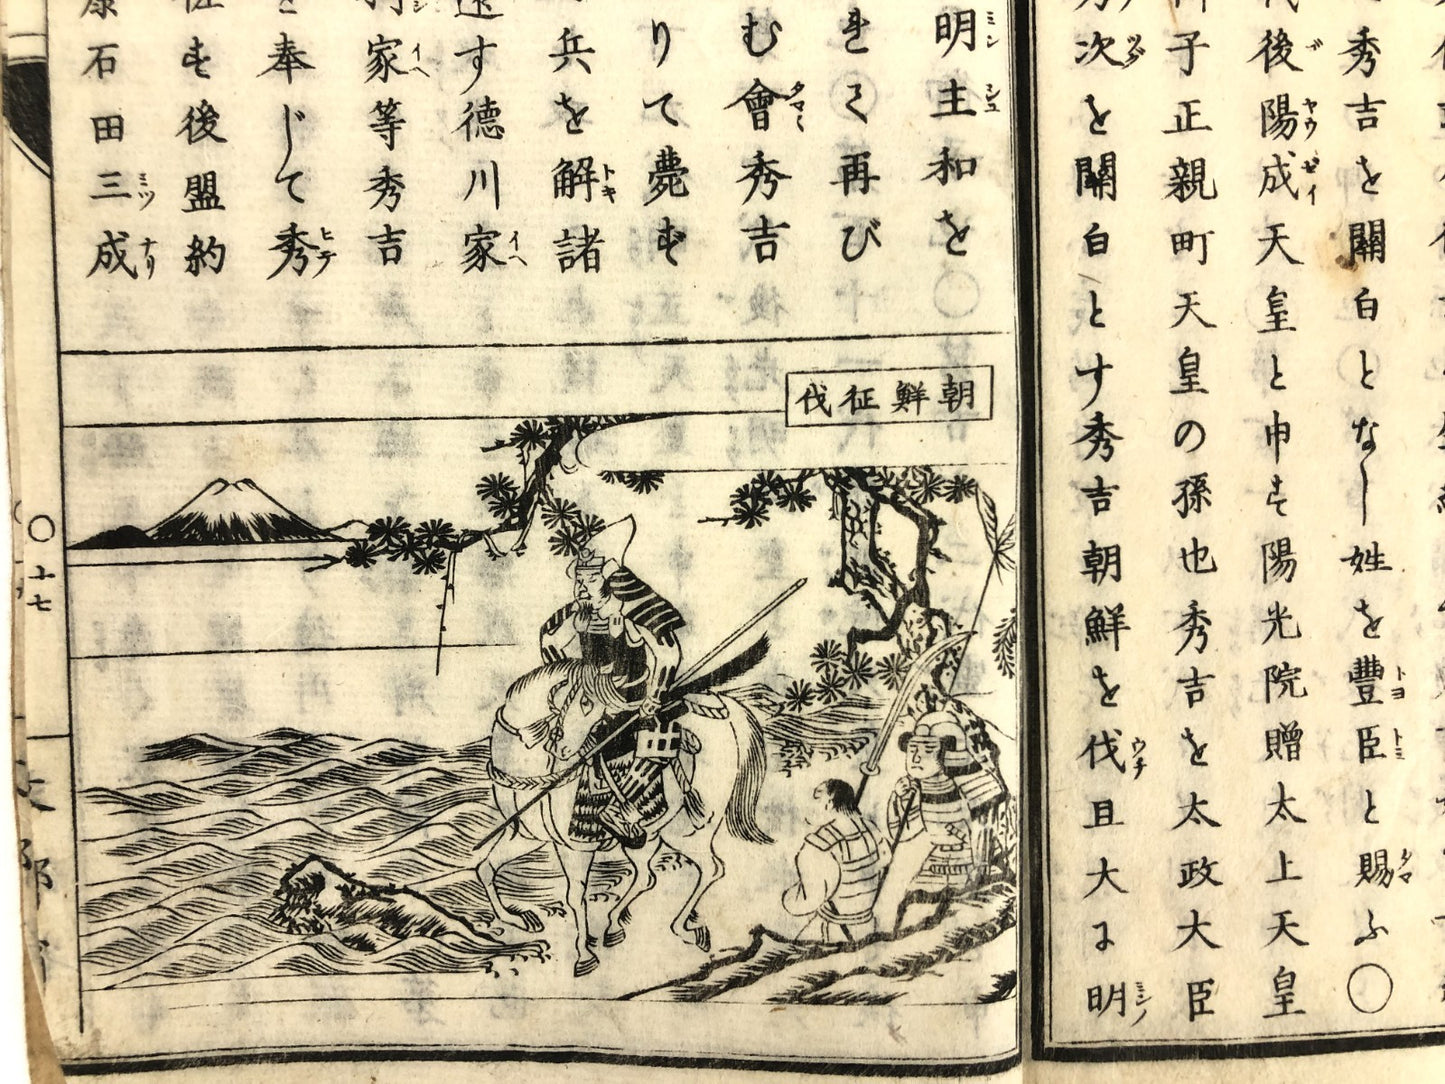 秀吉を關白となし姓を豐臣と賜ふ〇
後陽成天皇と申す陽光院贈太上天皇
子正親町天皇の孫也秀吉を太政大臣
次を關白とす秀吉朝鮮を伐且大に明
明主和を
きて再び
む會秀吉
りて薨ず
兵を解諸
す德川家
家等秀吉
奉じて秀
も後盟約
康石田三成
朝鮮征伐
〇十七
文部省